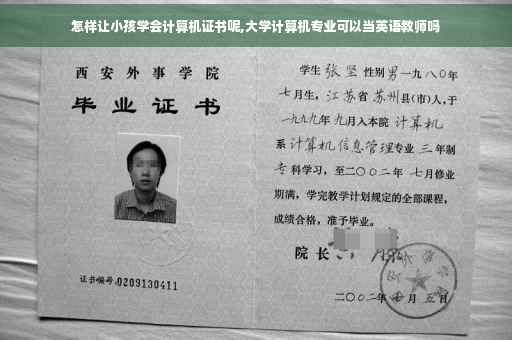 怎样让小孩学会计算机证书呢,大学计算机专业可以当英语教师吗
西安外事学院
毕业证书
证书编号:0209130411
学生 张坚 性别男一九八〇年
七月生，江苏省 苏州县(市)人,于
一九九九年 九月入本院 计算机
系 计算机信息管理专业 三 年制
专 科学习，至二〇〇二年 七月修业
期满，学完教学计划规定的全部课程，
成绩合格，准予毕业。
院长
二〇〇二年 月 五日